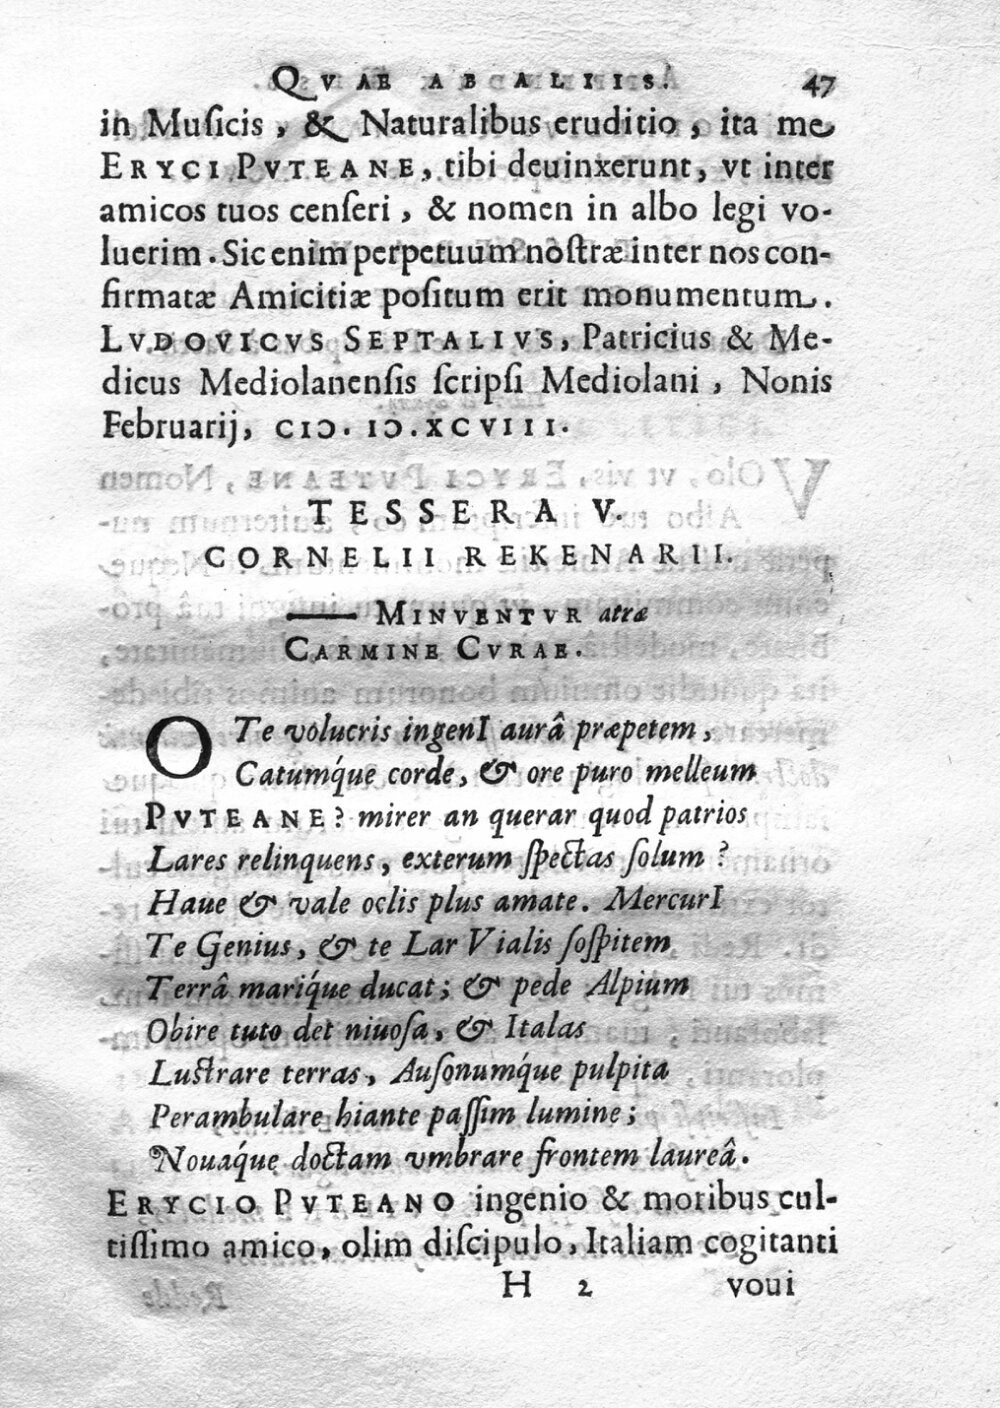 QVAE AB ALIIS. 47
in Muſicis, & Naturalibus eruditio, ita me
ERYCI PVTEANE, tibi deuinxerunt, vt inter
amicos tuos cenſeri, & nomen in albo legi vo-
luerim. Sic enim perpetuum noſtræ inter nos con-
firmatæ Amicitiæ poſitum erit monumentum.
LVDOVICVS SEPTALIVS, Patricius & Me-
dicus Mediolanenſis ſcripſi Mediolani, Nonis
Februarij, CIↃ. IↃ. XCVIII.
TESSERA V.
CORNELII REKENARII.
—— MINVENTVR atræ
CARMINE CVRAE.
O Te volucris ingenI aurâ præpetem,
Catumq́ue corde, & ore puro melleum
PVTEANE? mirer an querar quod patrios
Lares relinquens, exterum ſpectas ſolum?
Haue & vale oclis plus amate. MercurI
Te Genius, & te Lar Vialis ſoſpitem
Terrâ mariq́ue ducat; & pede Alpium
Obire tuto det niuoſa, & Italas
Luſtrare terras, Auſonumq́ue pulpita
Perambulare hiante paſſim lumine;
Nouaq́ue doctam vmbrare frontem laureâ.
ERYCIO PVTEANO ingenio & moribus cul-
tiſſimo amico, olim diſcipulo, Italiam cogitanti
H 2 voui